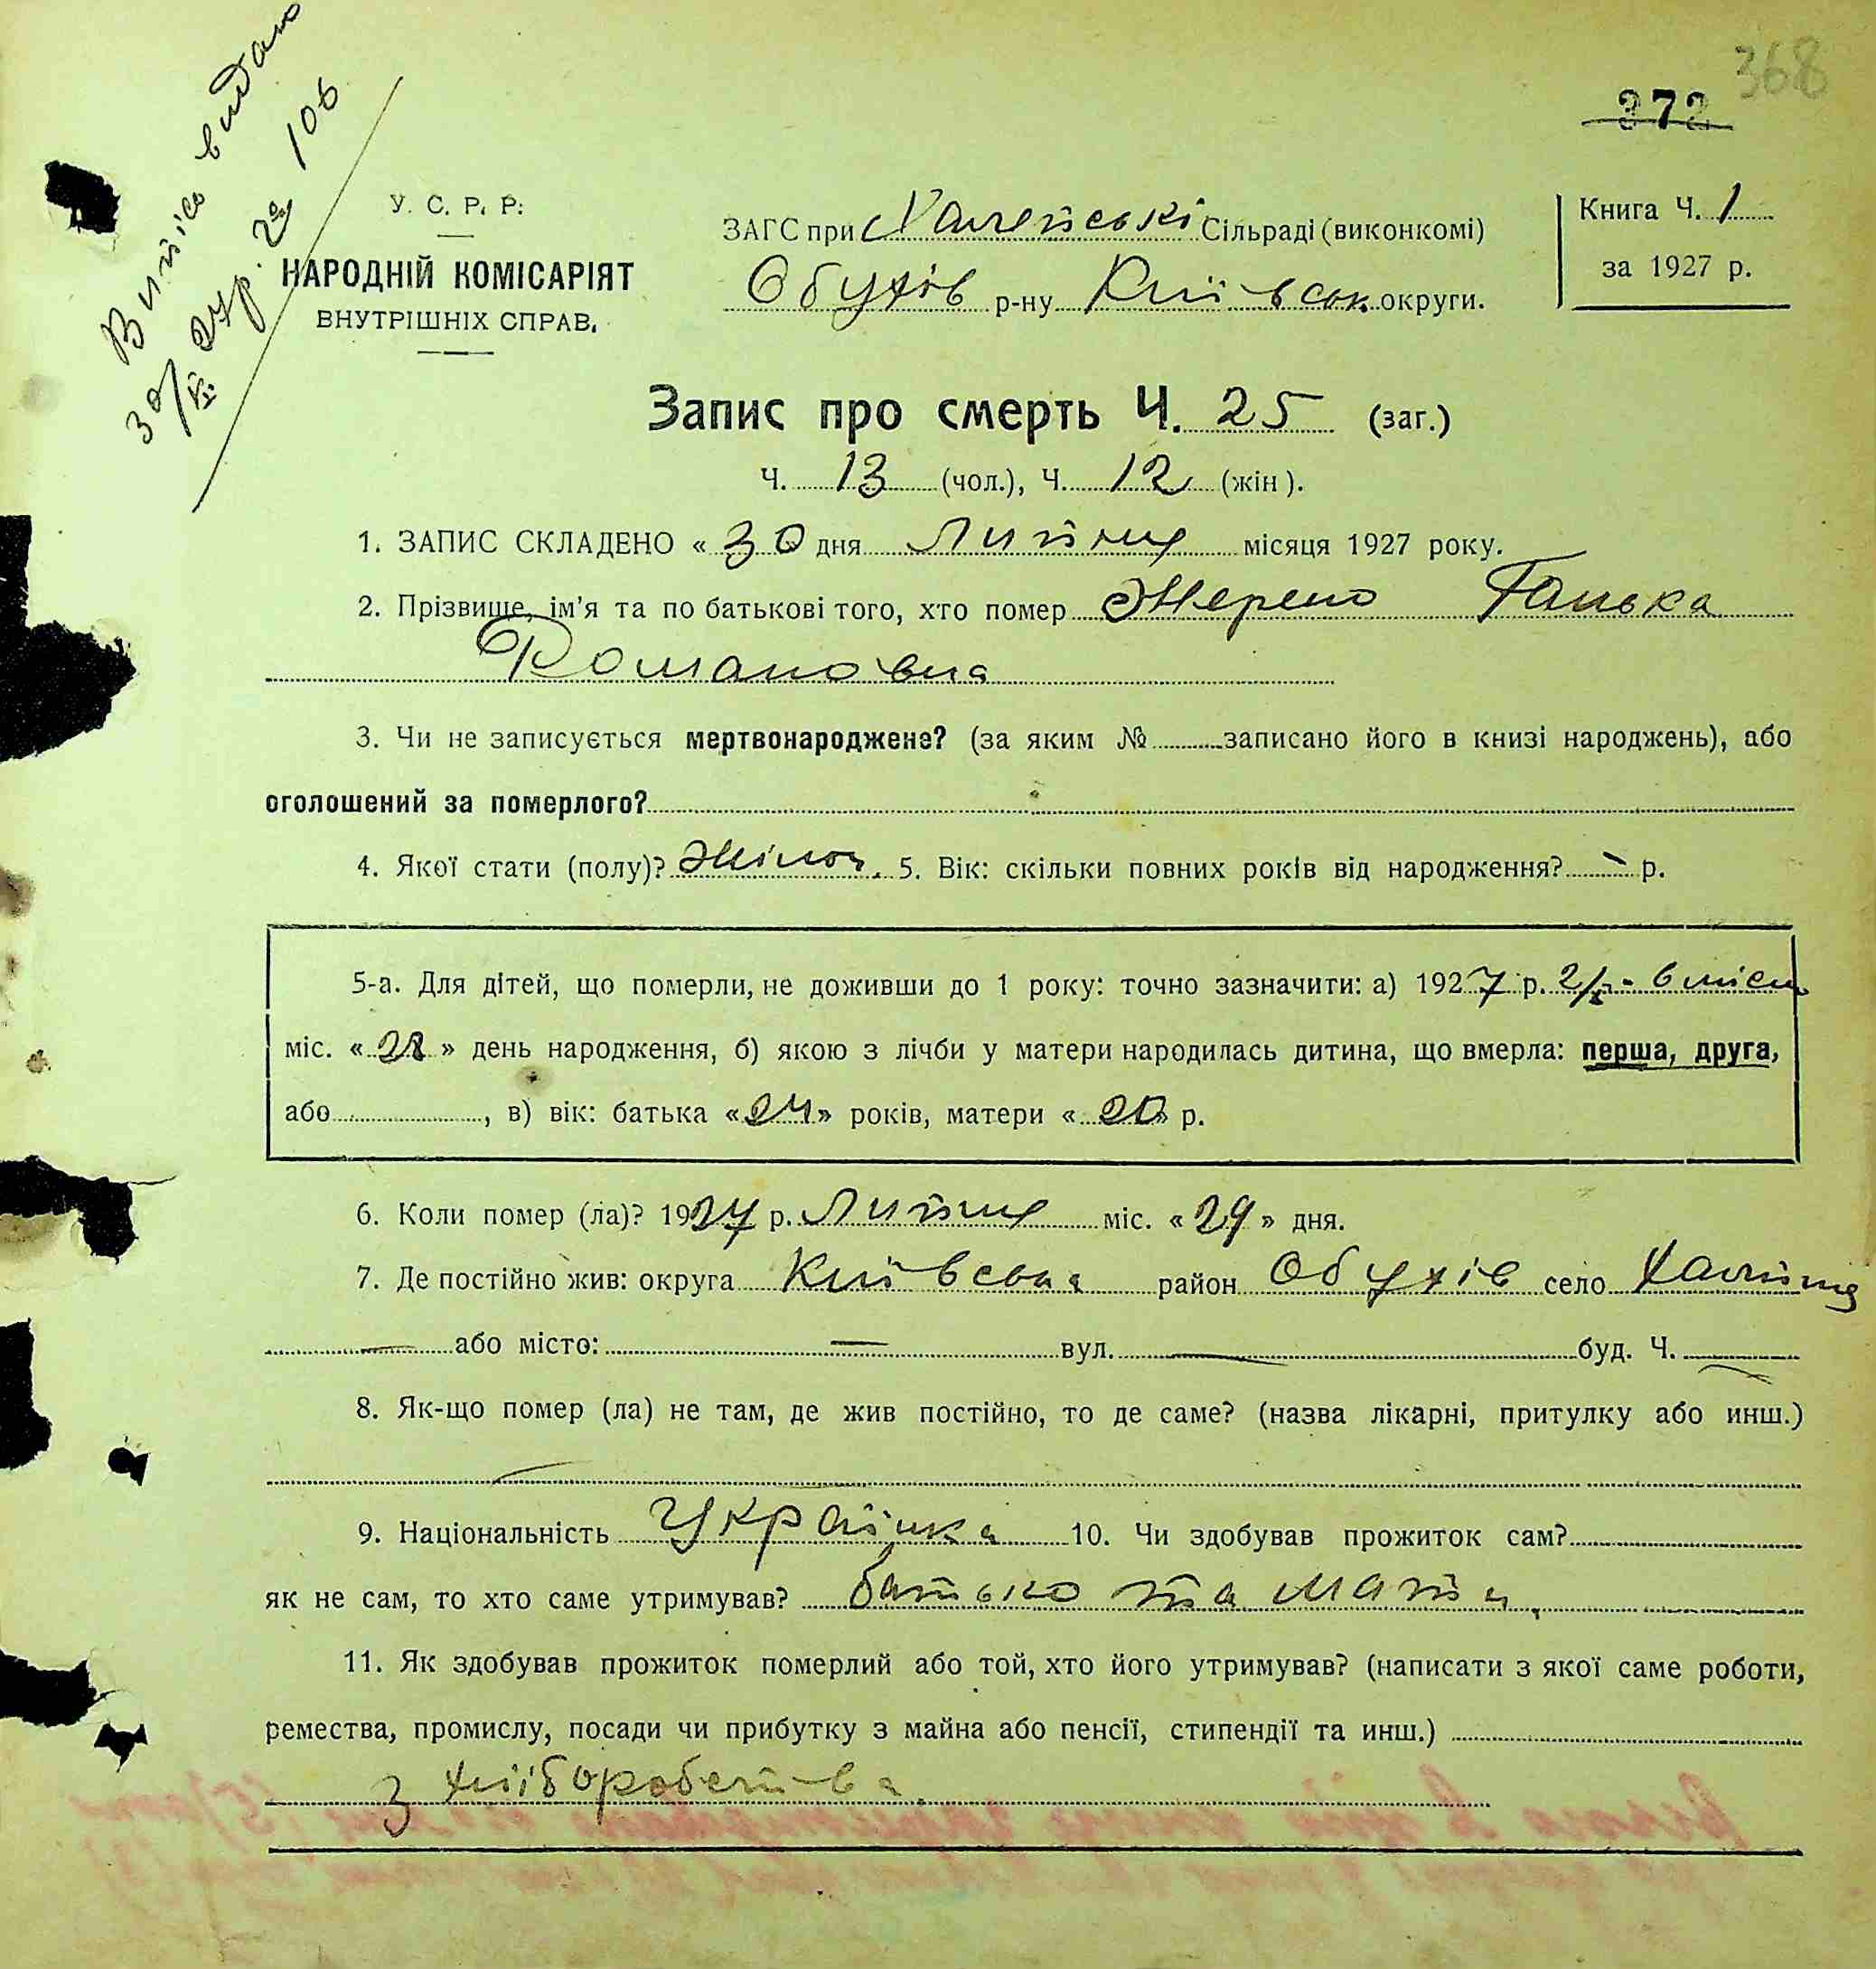 368
372
Витіс видано
30/VII 27р. № 106
У. С. Р. Р.
НАРОДНІЙ КОМІСАРІЯТ
ВНУТРІШНІХ СПРАВ.
ЗАГС при Халепські Сільраді (виконкомі)
Обухів р-ну Київськ округи.
Книга Ч. 1
за 1927 р.
Запис про смерть Ч. 25 (заг.)
Ч. 13 (чол.), Ч. 12 (жін).
1. ЗАПИС СКЛАДЕНО « 30 дня Липня місяця 1927 року.
2. Прізвище, ім'я та по батькові того, хто помер Ганька
Романовна
3. Чи не записується мертвонароджене? (за яким № записано його в книзі народжень), або
оголошений за померлого?
4. Якої стати (полу)? Жіноч. 5. Вік: скільки повних років від народження? - р.
5-а. Для дітей, що померли, не доживши до 1 року: точно зазначити: а) 1927 р. 6 місяц
міс. « 28 » день народження, б) якою з лічби у матери народилась дитина, що вмерла: перша, друга,
або , в) вік: батька «24» років, матери « 20» р.
6. Коли помер (ла)? 1927 р. Липня міс. « 29 » дня.
7. Де постійно жив: округа Київська район Обухів село Халепя
— або місто: — вул. — буд. Ч. —
8. Як-що помер (ла) не там, де жив постійно, то де саме? (назва лікарні, притулку або инш.)
9. Національність Українка 10. Чи здобував прожиток сам?
як не сам, то хто саме утримував? батько та мати.
11. Як здобував прожиток померлий або той, хто його утримував? (написати з якої саме роботи,
ремества, промислу, посади чи прибутку з майна або пенсії, стипендії та инш.)
з хліборобства.